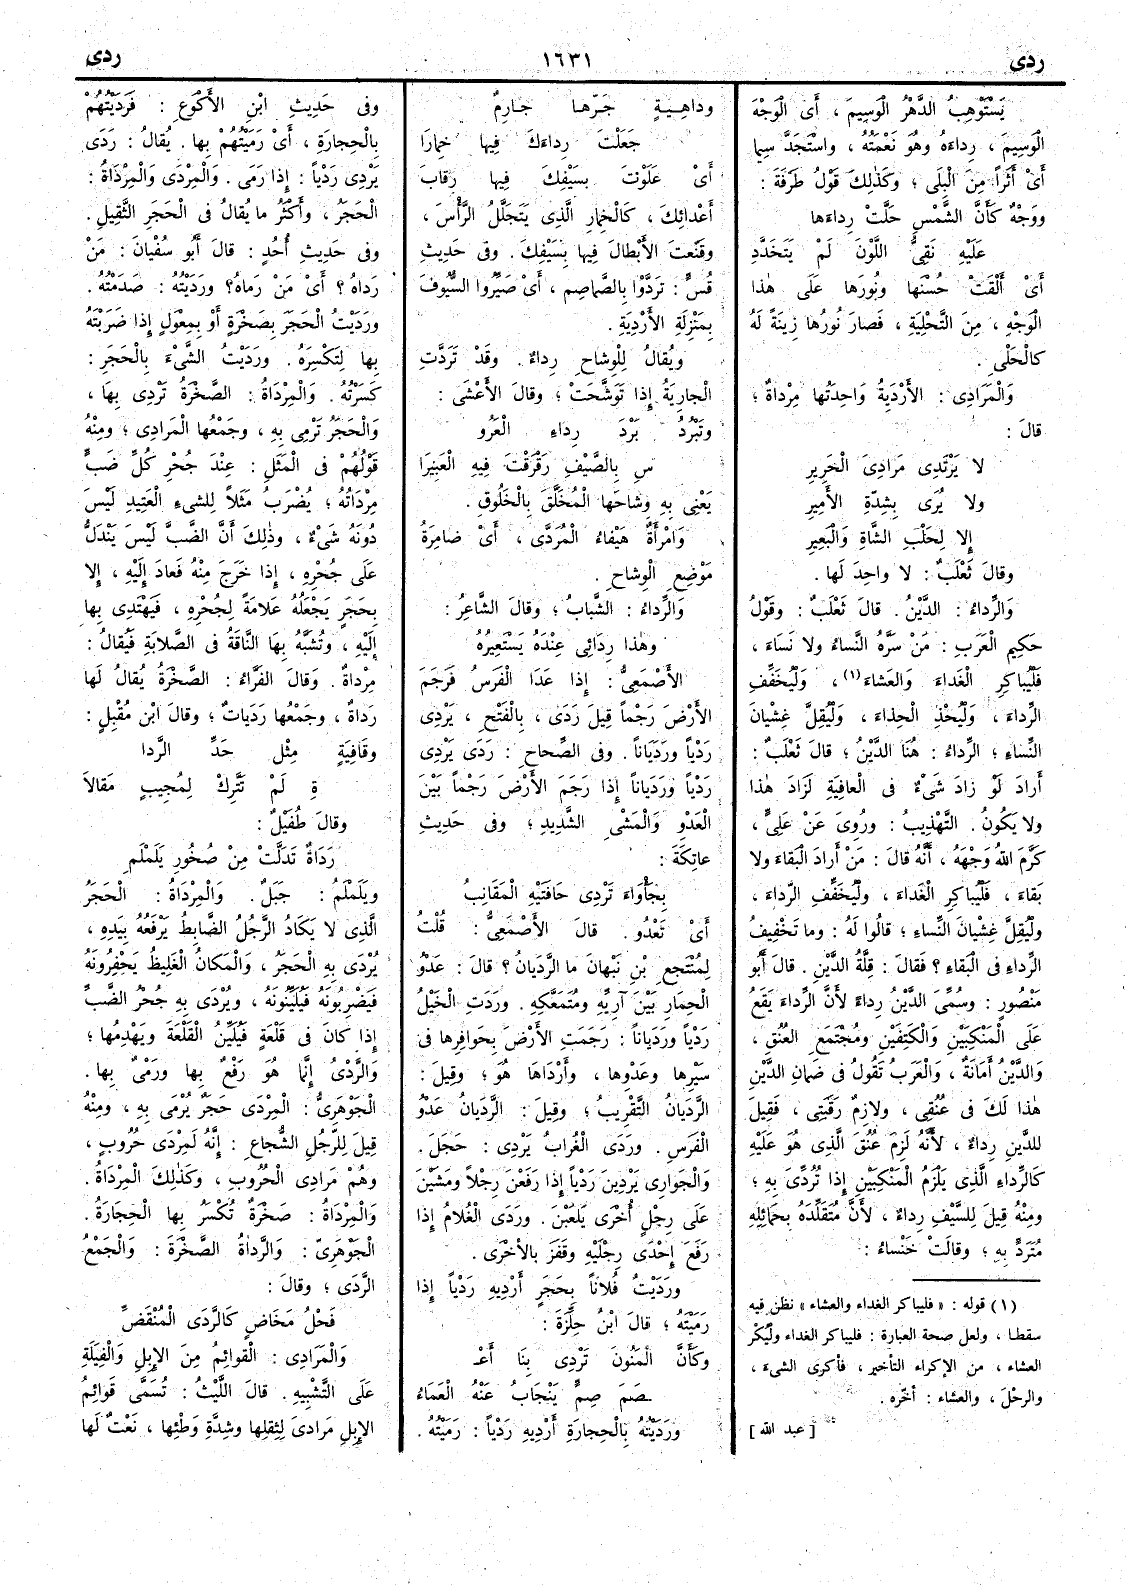 ردى
١٦٣١
ردى
يَسْتَوْهِبُ الدَّهْرُ الْوَسِيمَ ، أَى الْوَجْهَ
الْوَسِيمَ ، رِداءَهُ وهُوَ نَعْمَتُهُ ، واسْتَجَدَّ سِيما
أَىْ أَثَراً مِنَ الْبِلَى ؛ وكَذٰلِكَ قَوْلُ طَرَفَةَ :
ووَجْهٌ كَأَنَّ الشَّمْسَ حَلَّتْ رِداءَها
عَلَيْهِ نَقِىُّ اللَّوْنِ لَمْ يَتَخَدَّدِ
أَىْ أَلْقَتْ حُسْنَها ونُورَها عَلَى هٰذا
الْوَجْهِ ، مِنَ التَّحْلِيَةِ ، فَصارَ نُورُها زِينَةً لَهُ
كالْحَلْىِ .
وَالْمَرَادِى : الأَرْدِيَةُ وَاحِدَتُها مِرْداةٌ ؛
قالَ :
لا يَرْتَدِى مَرَادِىَ الْحَرِيرِ
ولا يُرَى بِشِدَّةِ الأَمِيرِ
إِلا لِحَلْبِ الشَّاةِ وَالْبَعِيرِ
وقالَ ثَعْلَبٌ : لا واحِدَ لَها .
وَالرِّداءُ : الدَّيْنُ . قالَ ثَعْلَبٌ : وقَوْلُ
حَكِيمِ الْعَرَبِ : مَنْ سَرَّهُ النَّساءُ ولا نَساءَ ،
فَلْيُباكِرِ الْغَداءَ وَالعَشاءَ (١) ، وَلْيُخَفِّفِ
الرِّداءَ ، وَلْيُحْذِ الْحِذاءَ ، وَلْيُقِلَّ غِشْيانَ
النِّساءِ ؛ الرِّداءُ : هُنَا الدَّيْنُ ؛ قالَ ثَعْلَبٌ :
أَرادَ لَوْ زادَ شَىْءٌ فى الْعافِيَةِ لَزَادَ هٰذا
ولا يَكُونُ . التَّهْذِيبُ : ورُوِىَ عَنْ عَلِىٍّ ،
كَرَّمَ اللهُ وَجْهَهُ ، أَنَّهُ قالَ : مَنْ أَرادَ الْبَقاءَ ولا
بَقاءَ ، فَلْيُباكِرِ الْغَداءَ ، ولْيُخَفِّفِ الرِّداءَ ،
ولْيُقِلَّ غِشْيانَ النِّساءِ ؛ قالُوا لَهُ : وما تَخْفِيفُ
الرِّداءِ فى الْبَقاءِ ؟ فَقالَ : قِلَّةُ الدَّيْنِ . قالَ أَبُو
مَنْصُورٍ : وسُمِّىَ الدَّيْنُ رِداءً لأَنَّ الرِّداءَ يَقَعُ
عَلَى الْمَنْكِبَيْنِ وَالْكَتِفَيْنِ ومُجْتَمَعِ الْعُنُقِ ،
وَالدَّيْنُ أَمَانَةٌ ، وَالْعَرَبُ تَقُولُ فى ضَمانِ الدَّيْنِ
هٰذا لَكَ فى عُنُقِى ، ولازِمُ رَقَبَتِى ، فَقِيلَ
للدَّينِ رِداءٌ ، لأَنَّهُ لَزِمَ عُنُقَ الَّذِى هُوَ عَلَيْهِ
كَالرِّداءِ الَّذِى يَلْزَمُ الْمَنْكِبَيْنِ إِذا تُرُدِّىَ بِهِ ؛
ومِنْهُ قِيلَ لِلسَّيْفِ رِداءٌ ، لأَنَّ مُتَقَلِّدَهُ بِحَمائِلِهِ
مُتَرَدٍّ بِهِ ؛ وقالَتْ خَنْساءُ :
(١) قوله : « فليباكر الغداء والعشاء » نظن فيه
سقطا ، ولعل صحة العبارة : فليباكر الغداء ولْيُكْرِ
العشاء ، من الإكراء التأخير ، فأكرى الشىءَ ،
والرحْلَ ، والعشاءَ : أخّره .
[ عبد الله ]
وداهِيةٍ جَرَّها جارِمٌ
جَعَلْتَ رِداءَكَ فِيها خِمارَا
أَىْ عَلَوْتَ بِسَيْفِكَ فِيها رِقابَ
أَعْدائِكَ ، كَالْخِمارِ الَّذِى يَتَجَلَّلُ الرَّأْسَ ،
وقَنَّعتَ الأَبْطالَ فِيها بِسَيْفِكَ . وفى حَدِيثِ
قُسٍّ : تَرَدَّوْا بِالصَّماصِمِ ، أَىْ صَيَّرُوا السُّيُوفَ
بِمَنْزِلَةِ الأَرْدِيَةِ .
ويُقالُ لِلْوِشاحِ رِداءٌ . وقَدْ تَرَدَّتِ
الْجارِيَةُ إِذا تَوَشَّحَتْ ؛ وقالَ الأَعْشَى :
وتَبْرُدُ بَرْدَ رِداءِ الْعَرُو
سِ بِالصَّيْفِ رَقْرَقْتَ فِيهِ الْعَبِيرَا
يَعْنِى بِهِ وِشاحَها الْمُخَلَّقَ بِالْخَلُوقِ .
وَامْرأَةٌ هَيْفاءُ الْمُرَدَّى ، أَىْ ضامِرَةُ
مَوْضِعِ الْوِشاحِ .
وَالرِّداءُ : الشَّبابُ ؛ وقالَ الشَّاعِرُ :
وهٰذا رِدَائِى عِنْدَهُ يَسْتَعِيرُهُ
الأَصْمَعِىُّ : إِذا عَدَا الْفَرَسُ فَرَجَمَ
الأَرْضَ رَجْماً قِيلَ رَدَى ، بِالْفَتْحِ ، يَرْدِى
رَدْياً ورَدَيَاناً . وفى الصِّحاحِ : رَدَى يَرْدِى
رَدْياً ورَدَياناً إِذا رَجَمَ الأَرْضَ رَجْماً بَيْنَ
الْعَدْوِ وَالْمَشْىِ الشَّدِيدِ ؛ وفى حَدِيثِ
عاتِكَةَ :
بِجَأْواءَ تَرْدِى حَافَتَيْهِ الْمَقَانِبُ
أَىْ تَعْدُو . قالَ الأَصْمَعِىُّ : قُلْتُ
لِمُنْتَجِعِ بْنِ نَبْهانَ ما الرَّدَيانُ ؟ قالَ : عَدْوُ
الْحِمارِ بَيْنَ آرِيِّهِ ومُتَمَعَّكِهِ . ورَدَتِ الْخَيْلُ
رَدْياً ورَدَياناً : رَجَمَتِ الأَرْضَ بِحَوافِرِها فى
سَيْرِها وعَدْوِها ، وأَرْدَاها هُوَ ؛ وقِيلَ :
الرَّدَيانُ التَّقْرِيبُ ؛ وقِيلَ : الرَّدَيانُ عَدْوُ
الْفَرَسِ . ورَدَى الْغُرابُ يَرْدِى : حَجَلَ .
وَالْجَوارِى يَرْدِينَ رَدْياً إِذا رَفَعْنَ رِجْلاً ومَشَيْنَ
عَلَى رِجْلٍ أُخْرَى يَلْعَبْنَ . ورَدَى الْغُلامُ إِذا
رَفَعَ إِحْدَى رِجْلَيْهِ وقَفَزَ بِالأُخْرَى .
ورَدَيْتُ فُلاناً بِحَجَرٍ أَرْدِيهِ رَدْياً إِذا
رَمَيْتَهُ ؛ قالَ ابْنُ حِلِّزَةَ :
وكَأَنَّ الْمَنُونَ تَرْدِى بِنَا أَعْـ
ـصَمَ صِمٍّ يَنْجَابُ عَنْهُ الْعَمَاءُ
ورَدَيْتُهُ بِالْحِجارَةِ أَرْدِيهِ رَدْياً : رَمَيْتُهُ .
وفى حَدِيثِ ابْنِ الأَكْوَعِ : فَرَدَيْتُهُمْ
بِالْحِجارَةِ ، أَىْ رَمَيْتُهُمْ بِها . يُقالُ : رَدَى
يَرْدِى رَدْياً : إِذا رَمَى . وَالْمِرْدَى وَالْمِرْدَاةُ :
الْحَجَرُ ، وأَكْثَرُ ما يُقالُ فى الْحَجَرِ الثَّقِيلِ .
وفى حَدِيثِ أُحُدٍ : قالَ أَبُو سُفْيانَ : مَنْ
رَداهُ ؟ أَىْ مَنْ رَماهُ؟ ورَدَيْتُهُ : صَدَمْتُهُ .
ورَدَيْتُ الْحَجَرَ بِصَخْرَةٍ أَوْ بِمِعْوَلٍ إِذا ضَرَبْتَهُ
بِها لِتَكْسِرَهُ . ورَدَيْتُ الشَّىْءَ بِالْحَجَرِ :
كَسَرْتُهُ . وَالْمِرْدَاةُ : الصَّخْرَةُ تَرْدِى بِهَا ،
وَالْحَجَرُ تَرْمِى بِهِ ، وجَمْعُها الْمَرادِى ؛ ومِنْهُ
قَوْلُهُمْ فى الْمَثَلِ : عِنْدَ جُحْرِ كُلِّ ضَبٍّ
مِرْدَاتُهُ ؛ يُضْرَبُ مَثَلاً لِلشىءِ الْعَتِيدِ لَيْسَ
دُونَهُ شَىْءٌ ، وذٰلِكَ أَنَّ الضَّبَّ لَيْسَ يَنْدَلُّ
عَلَى جُحْرِهِ ، إِذا خَرَجَ مِنْهُ فَعادَ إِلَيْهِ ، إِلا
بِحَجَرٍ يَجْعَلُهُ عَلامَةً لِجُحْرِهِ ، فَيَهْتَدِى بِها
إِلَيْهِ ، وتُشَبَّهُ بِهَا النَّاقَةُ فى الصَّلابَةِ فَيُقالُ :
مِرْداةٌ وقالَ الفَرَّاءُ : الصَّخْرَةُ يُقالُ لَها
رَداةٌ ، وجَمْعُها رَدَياتٌ ؛ وقالَ ابْنُ مُقْبِلٍ :
وقَافِيَةٍ مِثْلِ حَدِّ الرَّدا
ةِ لَمْ تَتَّرِكْ لِمُجِيبٍ مَقَالاَ
وقالَ طُفَيْلٌ :
رَدَاةٌ تَدَلَّتْ مِنْ صُخُورِ يَلَمْلَمِ
ويَلَمْلَمُ : جَبَلٌ . وَالْمِرْدَاةُ : الْحَجَرُ
الَّذِى لا يَكادُ الرَّجُلُ الضَّابِطُ يَرْفَعُهُ بِيَدِهِ ،
يُرْدَى بِهِ الْحَجَرُ ، وَالْمَكانُ الْغَلِيظُ يَحْفِرُونَهُ
فَيَضْرِبُونَهُ فَيُلَيِّنُونَهُ ، ويُرْدَى بِهِ جُحْرُ الضَّبِّ
إِذا كانَ فى قَلْعَةٍ فَيُلَيِّنُ الْقَلْعَةَ ويَهْدِمُها ؛
وَالرَّدْىُ إِنَّما هُوَ رَفْعٌ بِها ورَمْىٌ بِها .
الْجَوْهَرِىُّ : الْمِرْدَى حَجَرٌ يُرْمَى بِهِ ، ومِنْهُ
قِيلَ لِلرَّجُلِ الشُّجاعِ : إِنَّهُ لَمِرْدَى حُرُوبٍ ،
وهُمْ مَرَادِى الْحُرُوبِ ، وكَذٰلِكَ الْمِرْدَاةُ .
وَالْمِرْدَاةُ : صَخْرَةٌ تُكْسَرُ بِها الْحِجارَةُ .
الْجَوْهَرِىّ : وَالرَّداةُ الصَّخْرَةُ : وَالْجَمْعُ
الرَّدَى ؛ وقالَ :
فَحْلُ مَخَاضٍ كَالرَّدَى الْمُنْقَضِّ
وَالْمَرَادِى : الْقَوائِمُ مِنَ الإِبِلِ وَالْفِيَلَةِ
عَلَى التَّشْبِيهِ . قالَ اللَّيْثُ : تُسَمَّى قَوائِمُ
الإِبِلِ مَرادِىَ لِثِقَلِها وشِدَّةِ وَطْئِها ، نَعْتٌ لَها